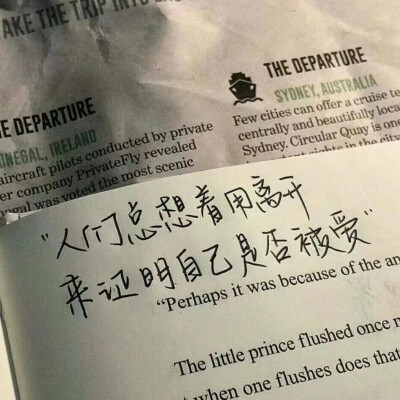 AKE THE TRIP INTO
THE DEPARTURE
SYDNEY, AUSTRALIA
Few cities can offer a cruise te
centrally and beautifully loca
Sydney. Circular Quay is one
in the city
E DEPARTURE
ONEGAL, IRELAND
aircraft pilots conducted by private
er company PrivateFly revealed
negal was voted the most scenic
“人们总想着用离开
来证明自己是否被爱”
“Perhaps it was because of the an
The little prince flushed once
when one flushes does that